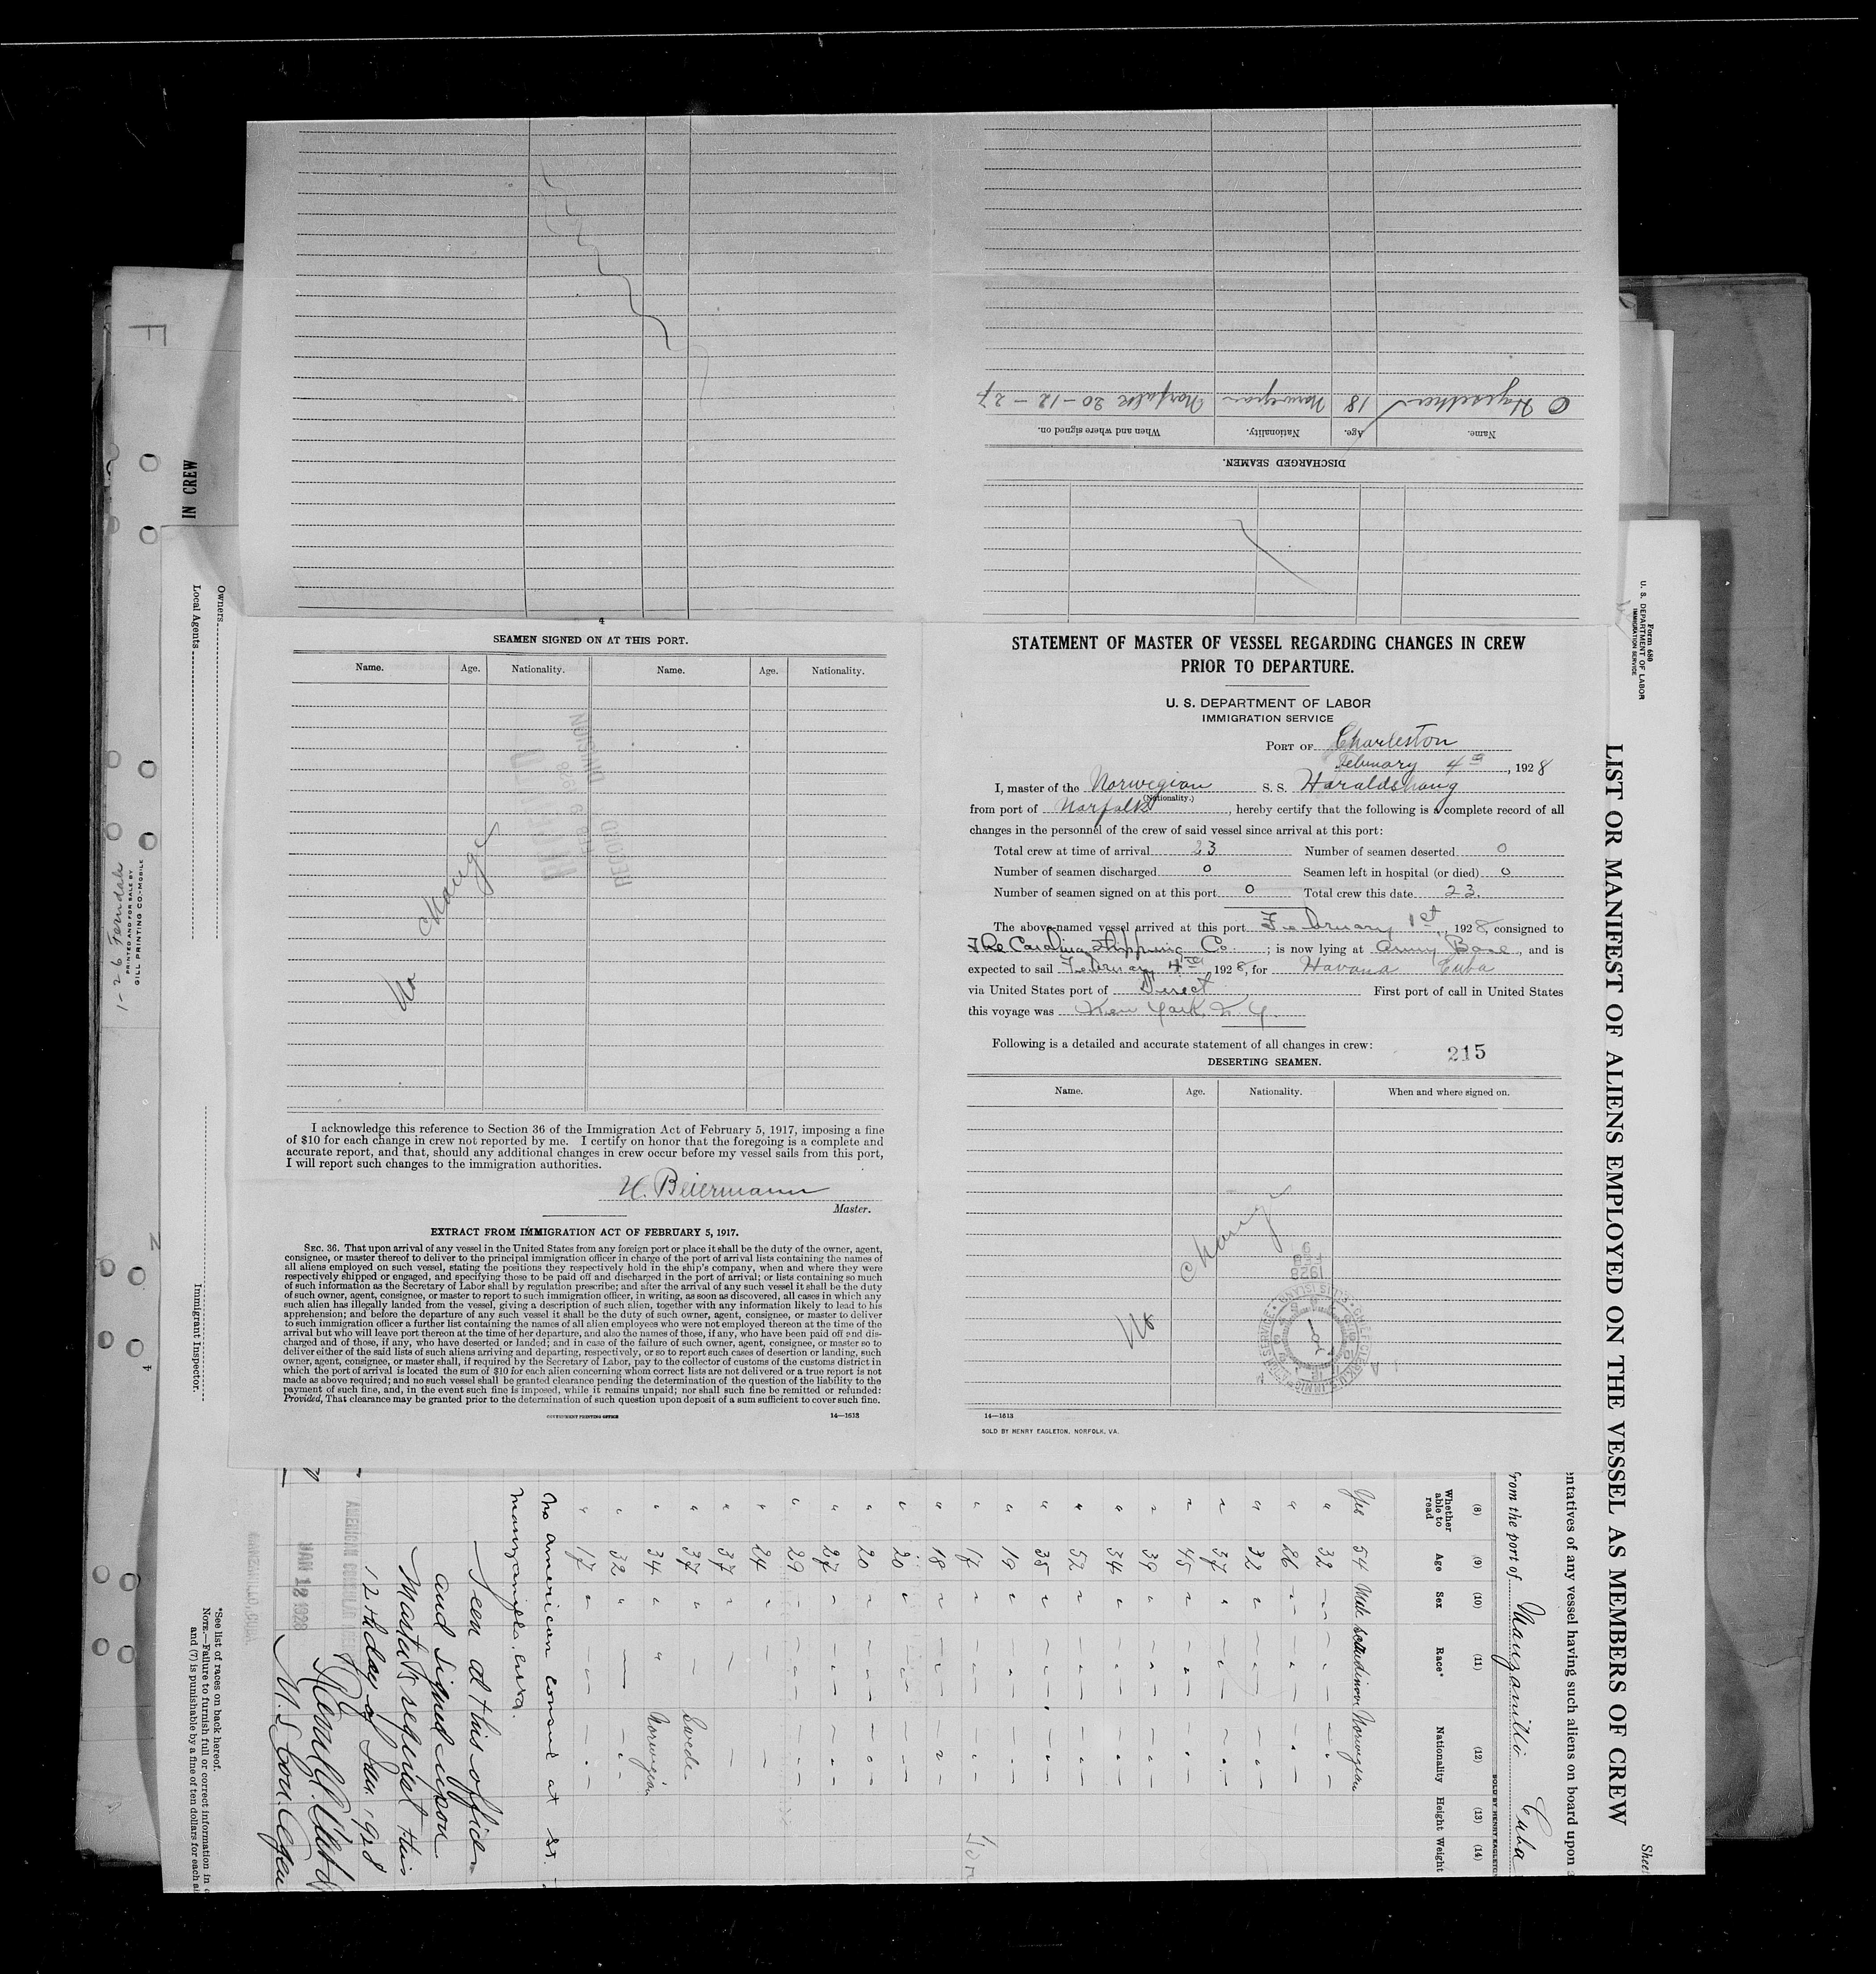 DISCHARGED SEAMEN.
Name. Age. Nationality. When and where signed on.
18 Norwegian Norfolk 20-12-27
4
SEAMEN SIGNED ON AT THIS PORT.
Name. Age. Nationality. Name. Age. Nationality.
No Change
I acknowledge this reference to Section 36 of the Immigration Act of February 5, 1917, imposing a fine
of $10 for each change in crew not reported by me. I certify on honor that the foregoing is a complete and
accurate report, and that, should any additional changes in crew occur before my vessel sails from this port,
I will report such changes to the immigration authorities.
H. Beiermann
Master.
EXTRACT FROM IMMIGRATION ACT OF FEBRUARY 5, 1917.
SEC. 36. That upon arrival of any vessel in the United States from any foreign port or place it shall be the duty of the owner, agent,
consignee, or master thereof to deliver to the principal immigration officer in charge of the port of arrival lists containing the names of
all aliens employed on such vessel, stating the positions they respectively hold in the ship's company, when and where they were
respectively shipped or engaged, and specifying those to be paid off and discharged in the port of arrival; or lists containing so much
of such information as the Secretary of Labor shall by regulation prescribe; and after the arrival of any such vessel it shall be the duty
of such owner, agent, consignee, or master to report to such immigration officer, in writing, as soon as discovered, all cases in which any
such alien has illegally landed from the vessel, giving a description of such alien, together with any information likely to lead to his
apprehension; and before the departure of any such vessel it shall be the duty of such owner, agent, consignee, or master to deliver
to such immigration officer a further list containing the names of all alien employees who were not employed thereon at the time of the
arrival but who will leave port thereon at the time of her departure, and also the names of those, if any, who have been paid off and dis-
charged and of those, if any, who have deserted or landed; and in case of the failure of such owner, agent, consignee, or master so to
deliver either of the said lists of such aliens arriving and departing, respectively, or so to report such cases of desertion or landing, such
owner, agent, consignee, or master shall, if required by the Secretary of Labor, pay to the collector of customs of the customs district in
which the port of arrival is located the sum of $10 for each alien concerning whom correct lists are not delivered or a true report is not
made as above required; and no such vessel shall be granted clearance pending the determination of the question of the liability to the
payment of such fine, and, in the event such fine is imposed, while it remains unpaid; nor shall such fine be remitted or refunded:
Provided, That clearance may be granted prior to the determination of such question upon deposit of a sum sufficient to cover such fine.
GOVERNMENT PRINTING OFFICE 14—1613
STATEMENT OF MASTER OF VESSEL REGARDING CHANGES IN CREW
PRIOR TO DEPARTURE.
U. S. DEPARTMENT OF LABOR
IMMIGRATION SERVICE
PORT OF Charleston
February 4th, 1928
I, master of the Norwegian S. S. Haraldshaug
(Nationality.)
from port of Norfolk, hereby certify that the following is a complete record of all
changes in the personnel of the crew of said vessel since arrival at this port:
Total crew at time of arrival 23 Number of seamen deserted 0
Number of seamen discharged 0 Seamen left in hospital (or died) 0
Number of seamen signed on at this port 0 Total crew this date 23.
The above-named vessel arrived at this port February 1st, 1928, consigned to
The Carolina Shipping Co.; is now lying at Army Base, and is
expected to sail February 4th 1928, for Havana Cuba
via United States port of Direct First port of call in United States
this voyage was New York, N. Y.
Following is a detailed and accurate statement of all changes in crew:
215
DESERTING SEAMEN.
Name. Age. Nationality. When and where signed on.
No Change
1928
FEB
9
14—1613
SOLD BY HENRY EAGLETON, NORFOLK, VA.
Form 680
U. S. DEPARTMENT OF LABOR
IMMIGRATION SERVICE
LIST OR MANIFEST OF ALIENS EMPLOYED ON THE VESSEL AS MEMBERS OF CREW
Shee
ntatives of any vessel having such aliens on board upon
from the port of Manzanillo Cuba
SOLD BY HENRY EAGLETON
(8) (9) (10) (11) (12) (13) (14)
Whether able to read Age Sex Race* Nationality Height Weight
Yes 54 Male Scandinav Norwegian
" 32
" 26
" 32
" 37
" 45
" 39
" 34
" 52
" 35
" 19
" 17
" 18
" 20
" 20
" 27
" 29
" 24
" 37
" 37 Swede
" 34 " Norwegian
" 32
" 17
No American consul at St.
Manzanillo, Cuba.
Seen at this office
and signed upon
Master's request this
12th day of Jan. 1928
AMERICAN CONSULAR AGENCY
JAN 12 1928
MANZANILLO, CUBA
*See list of races on back hereof.
NOTE.—Failure to furnish full or correct information in
and (7) is punishable by a fine of ten dollars for each al
Owners
Local Agents
Immigrant Inspector.
IN CREW
F
1-2 6 Ferndale
PRINTED AND FOR SALE BY
GILL PRINTING CO-MOBILE